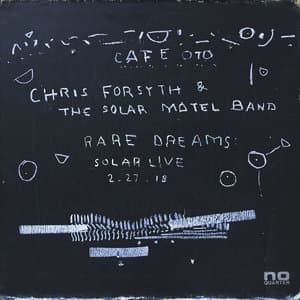 CAFE OTO
CHRIS FORSYTH &
THE SOLAR MOTEL BAND
RARE DREAMS:
SOLAR LIVE
2.27.18
no
QUARTER